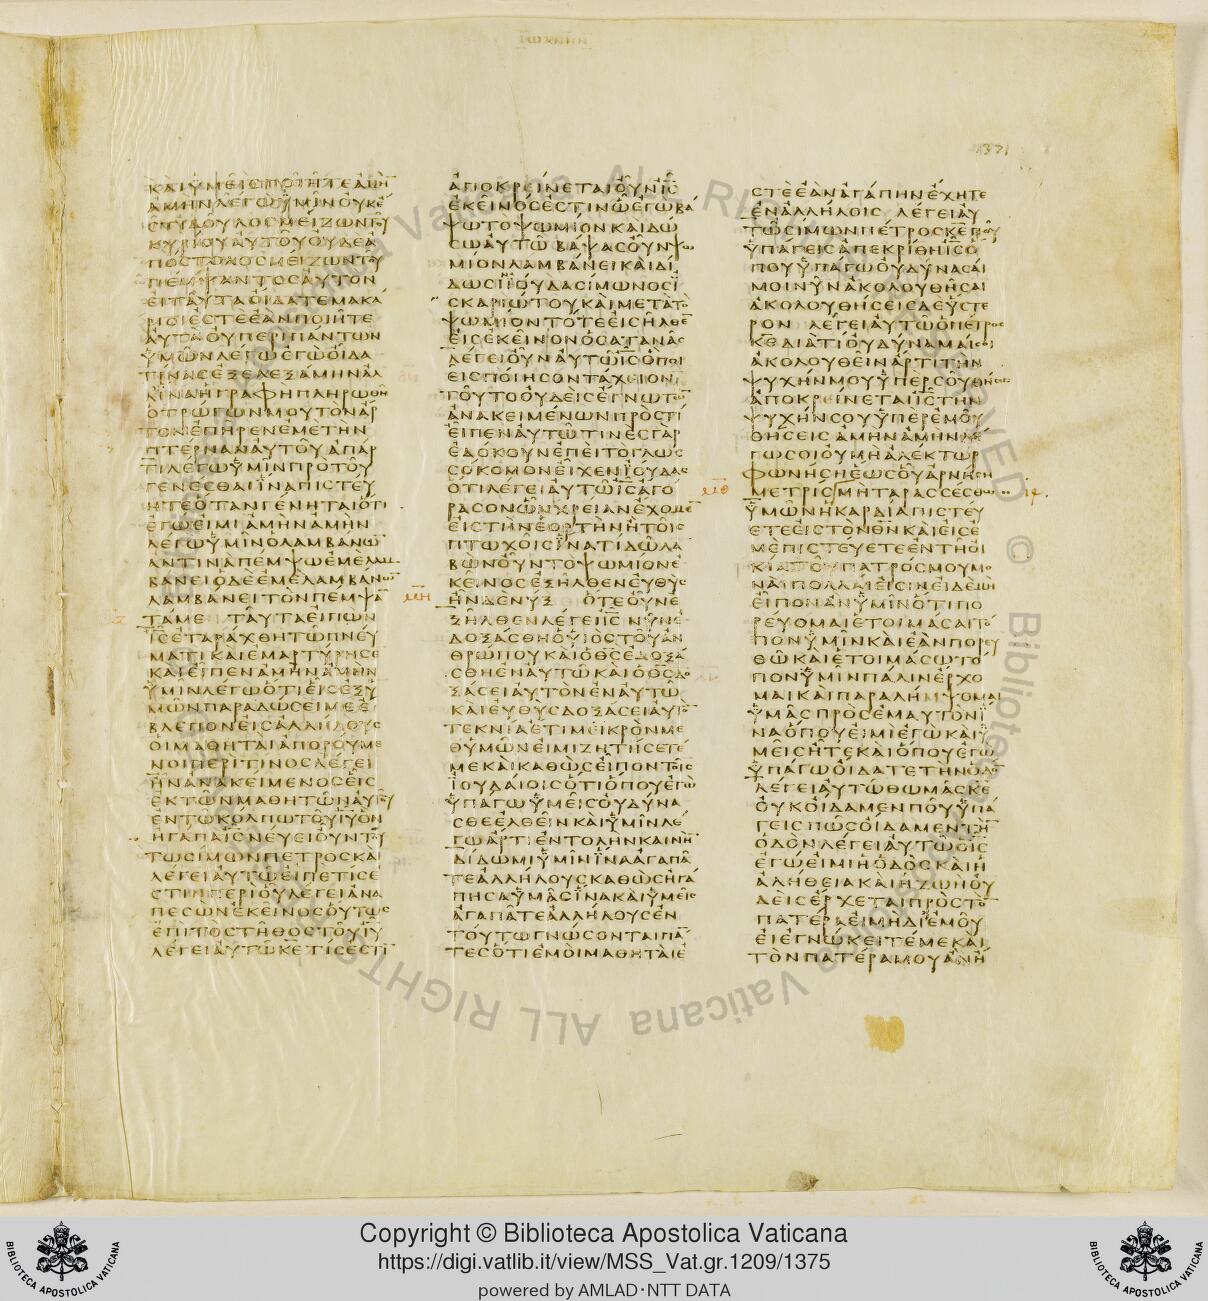 ΙΩΑΝΝΗΝ
1371
ΚΑΙ ΥΜΕΙΣ ΠΟΙΗΤΕ ΑΜΗ̅
ΑΜΗΝ ΛΕΓΩ ΥΜΙΝ ΟΥΚ Ε
ΣΤΙ ΔΟΥΛΟΣ ΜΕΙΖΩΝ ΤΟΥ
ΚΥΡΙΟΥ ΑΥΤΟΥ ΟΥΔΕ Α
ΠΟΣΤΟΛΟΣ ΜΕΙΖΩΝ ΤΟΥ
ΠΕΜΨΑΝΤΟΣ ΑΥΤΟΝ
ΕΙ ΤΑΥΤΑ ΟΙΔΑΤΕ ΜΑΚΑ
ΡΙΟΙ ΕΣΤΕ ΕΑΝ ΠΟΙΗΤΕ
ΑΥΤΑ ΟΥ ΠΕΡΙ ΠΑΝΤΩΝ
ΥΜΩΝ ΛΕΓΩ ΕΓΩ ΟΙΔΑ
ΤΙΝΑΣ ΕΞΕΛΕΞΑΜΗΝ ΑΛ
Λ ΙΝΑ Η ΓΡΑΦΗ ΠΛΗΡΩΘΗ
Ο ΤΡΩΓΩΝ ΜΟΥ ΤΟΝ ΑΡ
ΤΟΝ ΕΠΗΡΕΝ ΕΠ ΕΜΕ ΤΗΝ
ΠΤΕΡΝΑΝ ΑΥΤΟΥ ΑΠ ΑΡ
ΤΙ ΛΕΓΩ ΥΜΙΝ ΠΡΟ ΤΟΥ
ΓΕΝΕΣΘΑΙ ΙΝΑ ΠΙΣΤΕΥ
ΗΤΕ ΟΤΑΝ ΓΕΝΗΤΑΙ ΟΤΙ
ΕΓΩ ΕΙΜΙ ΑΜΗΝ ΑΜΗΝ
ΛΕΓΩ ΥΜΙΝ Ο ΛΑΜΒΑΝΩ̅
ΑΝ ΤΙΝΑ ΠΕΜΨΩ ΕΜΕ ΛΑΜ
ΒΑΝΕΙ Ο ΔΕ ΕΜΕ ΛΑΜΒΑΝΩ̅
ΛΑΜΒΑΝΕΙ ΤΟΝ ΠΕΜΨΑ̅
ΤΑ ΜΕ ΤΑΥΤΑ ΕΙΠΩΝ
Ι̅Σ̅ ΕΤΑΡΑΧΘΗ ΤΩ ΠΝΕΥ
ΜΑΤΙ ΚΑΙ ΕΜΑΡΤΥΡΗΣΕ
ΚΑΙ ΕΙΠΕΝ ΑΜΗΝ ΑΜΗΝ
ΥΜΙΝ ΛΕΓΩ ΟΤΙ ΕΙΣ ΕΞ Υ
ΜΩΝ ΠΑΡΑΔΩΣΕΙ ΜΕ Ε
ΒΛΕΠΟΝ ΕΙΣ ΑΛΛΗΛΟΥΣ
ΟΙ ΜΑΘΗΤΑΙ ΑΠΟΡΟΥΜΕ
ΝΟΙ ΠΕΡΙ ΤΙΝΟΣ ΛΕΓΕΙ
ΗΝ ΑΝΑΚΕΙΜΕΝΟΣ ΕΙΣ
ΕΚ ΤΩΝ ΜΑΘΗΤΩΝ ΑΥΤΟΥ
ΕΝ ΤΩ ΚΟΛΠΩ ΤΟΥ Ι̅Υ̅ ΟΝ
ΗΓΑΠΑ Ι̅Σ̅ ΝΕΥΕΙ ΟΥΝ ΤΟΥ
ΤΩ ΣΙΜΩΝ ΠΕΤΡΟΣ ΚΑΙ
ΛΕΓΕΙ ΑΥΤΩ ΕΙΠΕ ΤΙΣ Ε
ΣΤΙΝ ΠΕΡΙ ΟΥ ΛΕΓΕΙ ΑΝΑ
ΠΕΣΩΝ ΕΚΕΙΝΟΣ ΟΥΤΩΣ
ΕΠΙ ΤΟ ΣΤΗΘΟΣ ΤΟΥ Ι̅Υ̅
ΛΕΓΕΙ ΑΥΤΩ Κ̅Ε̅ ΤΙΣ ΕΣΤΙ̅
ΑΠΟΚΡΕΙΝΕΤΑΙ ΟΥΝ Ι̅Σ̅
ΕΚΕΙΝΟΣ ΕΣΤΙΝ Ω ΕΓΩ ΒΑ
ΨΩ ΤΟ ΨΩΜΙΟΝ ΚΑΙ ΔΩ
ΣΩ ΑΥΤΩ ΒΑΨΑΣ ΟΥΝ ΨΩ
ΜΙΟΝ ΛΑΜΒΑΝΕΙ ΚΑΙ ΔΙ
ΔΩΣΙΝ ΙΟΥΔΑ ΣΙΜΩΝΟΣ Ι
ΣΚΑΡΙΩΤΟΥ ΚΑΙ ΜΕΤΑ ΤΟ
ΨΩΜΙΟΝ ΤΟΤΕ ΕΙΣΗΛΘΕ̅
ΕΙΣ ΕΚΕΙΝΟΝ Ο ΣΑΤΑΝΑΣ
ΛΕΓΕΙ ΟΥΝ ΑΥΤΩ Ι̅Σ̅ Ο ΠΟΙ
ΕΙΣ ΠΟΙΗΣΟΝ ΤΑΧΕΙΟΝ
ΤΟΥΤΟ ΟΥΔΕΙΣ ΕΓΝΩ ΤΩ̅
ΑΝΑΚΕΙΜΕΝΩΝ ΠΡΟΣ ΤΙ
ΕΙΠΕΝ ΑΥΤΩ ΤΙΝΕΣ ΓΑΡ
ΕΔΟΚΟΥΝ ΕΠΕΙ ΤΟ ΓΛΩΣ
ΣΟΚΟΜΟΝ ΕΙΧΕΝ ΙΟΥΔΑΣ
ΟΤΙ ΛΕΓΕΙ ΑΥΤΩ Ι̅Σ̅ ΑΓΟ
ΡΑΣΟΝ ΩΝ ΧΡΕΙΑΝ ΕΧΟΜΕ̅
ΕΙΣ ΤΗΝ ΕΟΡΤΗΝ Η ΤΟΙΣ
ΠΤΩΧΟΙΣ ΙΝΑ ΤΙ ΔΩ ΛΑ
ΒΩΝ ΟΥΝ ΤΟ ΨΩΜΙΟΝ Ε
ΚΕΙΝΟΣ ΕΞΗΛΘΕΝ ΕΥΘΥΣ
ΗΝ ΔΕ ΝΥΞ ΟΤΕ ΟΥΝ Ε
ΞΗΛΘΕΝ ΛΕΓΕΙ Ι̅Σ̅ ΝΥΝ Ε
ΔΟΞΑΣΘΗ Ο ΥΙΟΣ ΤΟΥ ΑΝ
ΘΡΩΠΟΥ ΚΑΙ Ο Θ̅Σ̅ ΕΔΟΞΑ
ΣΘΗ ΕΝ ΑΥΤΩ ΚΑΙ Ο Θ̅Σ̅ ΔΟ
ΞΑΣΕΙ ΑΥΤΟΝ ΕΝ ΑΥΤΩ
ΚΑΙ ΕΥΘΥΣ ΔΟΞΑΣΕΙ ΑΥΤΟ̅
ΤΕΚΝΙΑ ΕΤΙ ΜΕΙΚΡΟΝ ΜΕ
Θ ΥΜΩΝ ΕΙΜΙ ΖΗΤΗΣΕΤΕ
ΜΕ ΚΑΙ ΚΑΘΩΣ ΕΙΠΟΝ ΤΟΙΣ
ΙΟΥΔΑΙΟΙΣ ΟΤΙ ΟΠΟΥ ΕΓΩ
ΥΠΑΓΩ ΥΜΕΙΣ ΟΥ ΔΥΝΑ
ΣΘΕ ΕΛΘΕΙΝ ΚΑΙ ΥΜΙΝ ΛΕ
ΓΩ ΑΡΤΙ ΕΝΤΟΛΗΝ ΚΑΙΝΗ̅
ΔΙΔΩΜΙ ΥΜΙΝ ΙΝΑ ΑΓΑΠΑ
ΤΕ ΑΛΛΗΛΟΥΣ ΚΑΘΩΣ ΗΓΑ
ΠΗΣΑ ΥΜΑΣ ΙΝΑ ΚΑΙ ΥΜΕΙΣ
ΑΓΑΠΑΤΕ ΑΛΛΗΛΟΥΣ ΕΝ
ΤΟΥΤΩ ΓΝΩΣΟΝΤΑΙ ΠΑ̅
ΤΕΣ ΟΤΙ ΕΜΟΙ ΜΑΘΗΤΑΙ Ε
ΣΤΕ ΕΑΝ ΑΓΑΠΗΝ ΕΧΗΤΕ
ΕΝ ΑΛΛΗΛΟΙΣ ΛΕΓΕΙ ΑΥ
ΤΩ ΣΙΜΩΝ ΠΕΤΡΟΣ Κ̅Ε̅ ΠΟΥ
ΥΠΑΓΕΙΣ ΑΠΕΚΡΙΘΗ Ι̅Σ̅ Ο
ΠΟΥ ΥΠΑΓΩ ΟΥ ΔΥΝΑΣΑΙ
ΜΟΙ ΝΥΝ ΑΚΟΛΟΥΘΗΣΑΙ
ΑΚΟΛΟΥΘΗΣΕΙΣ ΔΕ ΥΣΤΕ
ΡΟΝ ΛΕΓΕΙ ΑΥΤΩ Ο ΠΕΤΡΟΣ
Κ̅Ε̅ ΔΙΑ ΤΙ ΟΥ ΔΥΝΑΜΑΙ ΣΟΙ
ΑΚΟΛΟΥΘΕΙΝ ΑΡΤΙ ΤΗΝ
ΨΥΧΗΝ ΜΟΥ ΥΠΕΡ ΣΟΥ ΘΗΣΩ
ΑΠΟΚΡΕΙΝΕΤΑΙ Ι̅Σ̅ ΤΗΝ
ΨΥΧΗΝ ΣΟΥ ΥΠΕΡ ΕΜΟΥ
ΘΗΣΕΙΣ ΑΜΗΝ ΑΜΗΝ ΛΕ
ΓΩ ΣΟΙ ΟΥ ΜΗ ΑΛΕΚΤΩΡ
ΦΩΝΗΣΗ ΕΩΣ ΟΥ ΑΡΝΗΣΗ
ΜΕ ΤΡΙΣ ΜΗ ΤΑΡΑΣΣΕΣΘΩ
ΥΜΩΝ Η ΚΑΡΔΙΑ ΠΙΣΤΕΥ
ΕΤΕ ΕΙΣ ΤΟΝ Θ̅Ν̅ ΚΑΙ ΕΙΣ Ε
ΜΕ ΠΙΣΤΕΥΕΤΕ ΕΝ ΤΗ ΟΙ
ΚΙΑ ΤΟΥ ΠΑΤΡΟΣ ΜΟΥ ΜΟ
ΝΑΙ ΠΟΛΛΑΙ ΕΙΣΙΝ ΕΙ ΔΕ ΜΗ
ΕΙΠΟΝ ΑΝ ΥΜΙΝ ΟΤΙ ΠΟ
ΡΕΥΟΜΑΙ ΕΤΟΙΜΑΣΑΙ ΤΟ
ΠΟΝ ΥΜΙΝ ΚΑΙ ΕΑΝ ΠΟΡΕΥ
ΘΩ ΚΑΙ ΕΤΟΙΜΑΣΩ ΤΟ
ΠΟΝ ΥΜΙΝ ΠΑΛΙΝ ΕΡΧΟ
ΜΑΙ ΚΑΙ ΠΑΡΑΛΗΜΨΟΜΑΙ
ΥΜΑΣ ΠΡΟΣ ΕΜΑΥΤΟΝ Ι
ΝΑ ΟΠΟΥ ΕΙΜΙ ΕΓΩ ΚΑΙ Υ
ΜΕΙΣ ΗΤΕ ΚΑΙ ΟΠΟΥ ΕΓΩ
ΥΠΑΓΩ ΟΙΔΑΤΕ ΤΗΝ ΟΔΟ̅
ΛΕΓΕΙ ΑΥΤΩ ΘΩΜΑΣ Κ̅Ε̅
ΟΥΚ ΟΙΔΑΜΕΝ ΠΟΥ ΥΠΑ
ΓΕΙΣ ΠΩΣ ΟΙΔΑΜΕΝ ΤΗ̅
ΟΔΟΝ ΛΕΓΕΙ ΑΥΤΩ Ο Ι̅Σ̅
ΕΓΩ ΕΙΜΙ Η ΟΔΟΣ ΚΑΙ Η
ΑΛΗΘΕΙΑ ΚΑΙ Η ΖΩΗ ΟΥ
ΔΕΙΣ ΕΡΧΕΤΑΙ ΠΡΟΣ ΤΟ̅
ΠΑΤΕΡΑ ΕΙ ΜΗ ΔΙ ΕΜΟΥ
ΕΙ ΕΓΝΩΚΕΙΤΕ ΜΕ ΚΑΙ
ΤΟΝ ΠΑΤΕΡΑ ΜΟΥ ΑΝ Η
Copyright © Biblioteca Apostolica Vaticana
https://digi.vatlib.it/view/MSS_Vat.gr.1209/1375
powered by AMLAD·NTT DATA